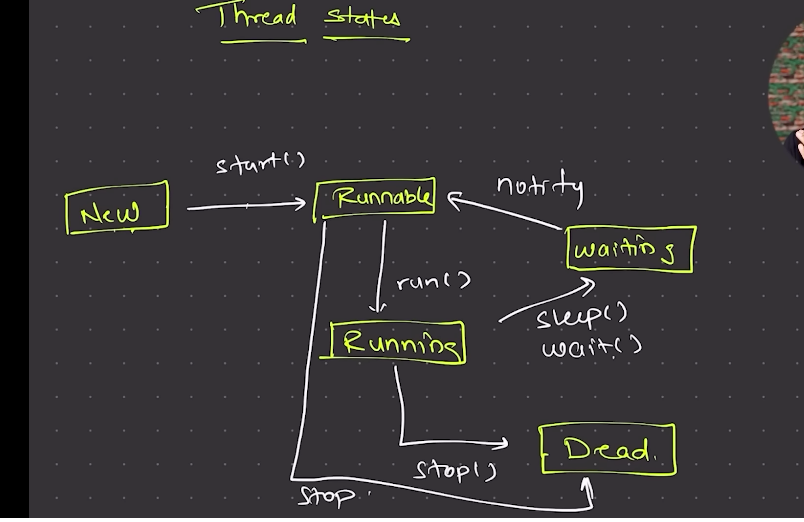 Thread states
start()
New
Runnable
notify
waiting
run()
sleep()
wait()
Running
Dead.
stop()
stop.